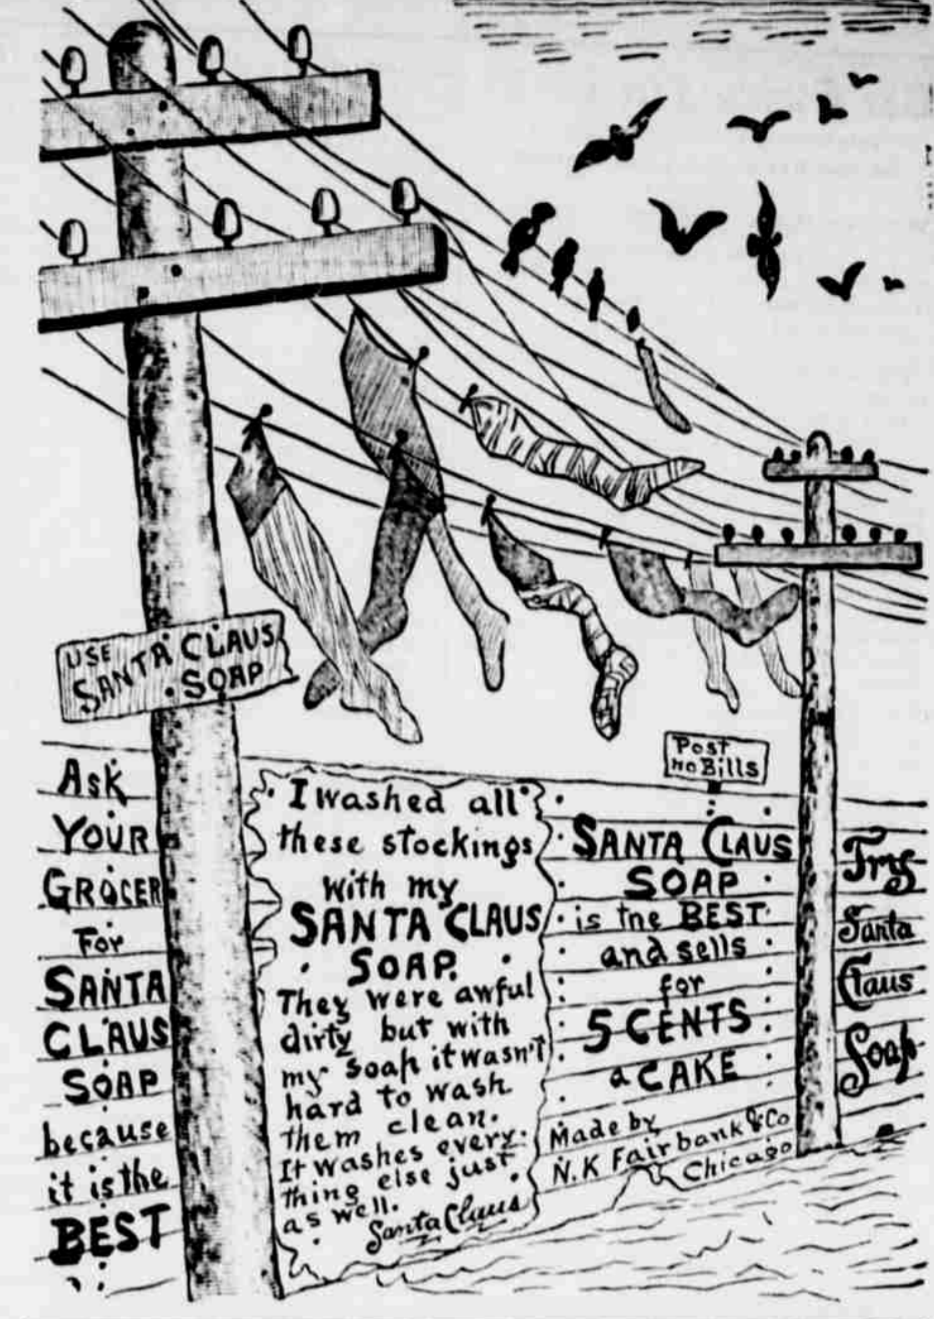 USE
SANTA CLAUS
SOAP
Post
no Bills
Ask
YOUR
GROCER
For
SANTA
CLAUS
SOAP
because
it is the
BEST
I washed all
these stockings
with my
SANTA CLAUS
SOAP.
They were awful
dirty but with
my soap it wasn't
hard to wash
them clean.
It washes every-
thing else just
as well.
Santa Claus
SANTA CLAUS
SOAP
is the BEST
and sells
for
5 CENTS
a CAKE
Made by
N.K Fairbank & Co
Chicago
Try
Santa
Claus
Soap